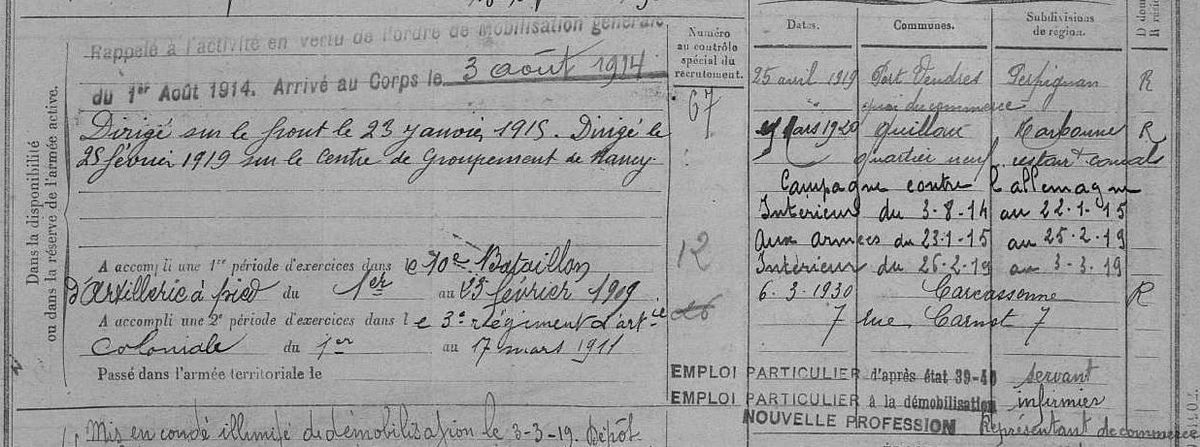 Dans la disponibilité
ou dans la réserve de l'armée active.
Rappelé à l'activité en vertu de l'ordre de Mobilisation générale
du 1er Août 1914. Arrivé au Corps le 3 août 1914
Dirigé sur le front le 23 janvier 1915. Dirigé le
25 février 1919 sur le Centre de Groupement de Nancy.
A accompli une 1re période d'exercices dans le 10e Bataillon
d'Artillerie à pied du 1er au 23 février 1909
A accompli une 2e période d'exercices dans le 3e régiment d'artie
Coloniale du 1er au 17 mars 1911
Passé dans l'armée territoriale le
Mis en congé illimité de démobilisation le 3-3-19. Dépôt
Numéro
au contrôle
spécial du
recrutement.
67
12
Dates.
Communes.
Subdivisions
de région.
25 avril 1919 Port Vendres Perpignan R
quai du commerce
mars 1920 Quillan Narbonne R
quartier neuf
Campagne contre l'allemagne
Intérieur du 3-8-14 au 22-1-15
Aux armées du 23-1-15 au 25-2-19
Intérieur du 26-2-19 au 3-3-19
6-3-1930 Carcassonne R
7 rue Carnot 7
EMPLOI PARTICULIER d'après état 39-40 servant
EMPLOI PARTICULIER à la démobilisation infirmier
NOUVELLE PROFESSION Représentant de commerce